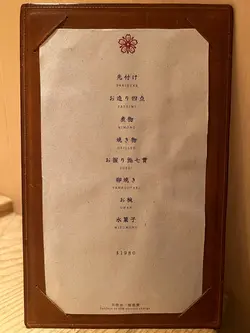 先付け
SAKIZUKE
お造り四点
SASHIMI
煮物
NIMONO
焼き物
お握り鮨七貫
SUSHI
卵焼き
TAMAGOYAKI
お椀
OWAN
水菓子
MIZUGASHI